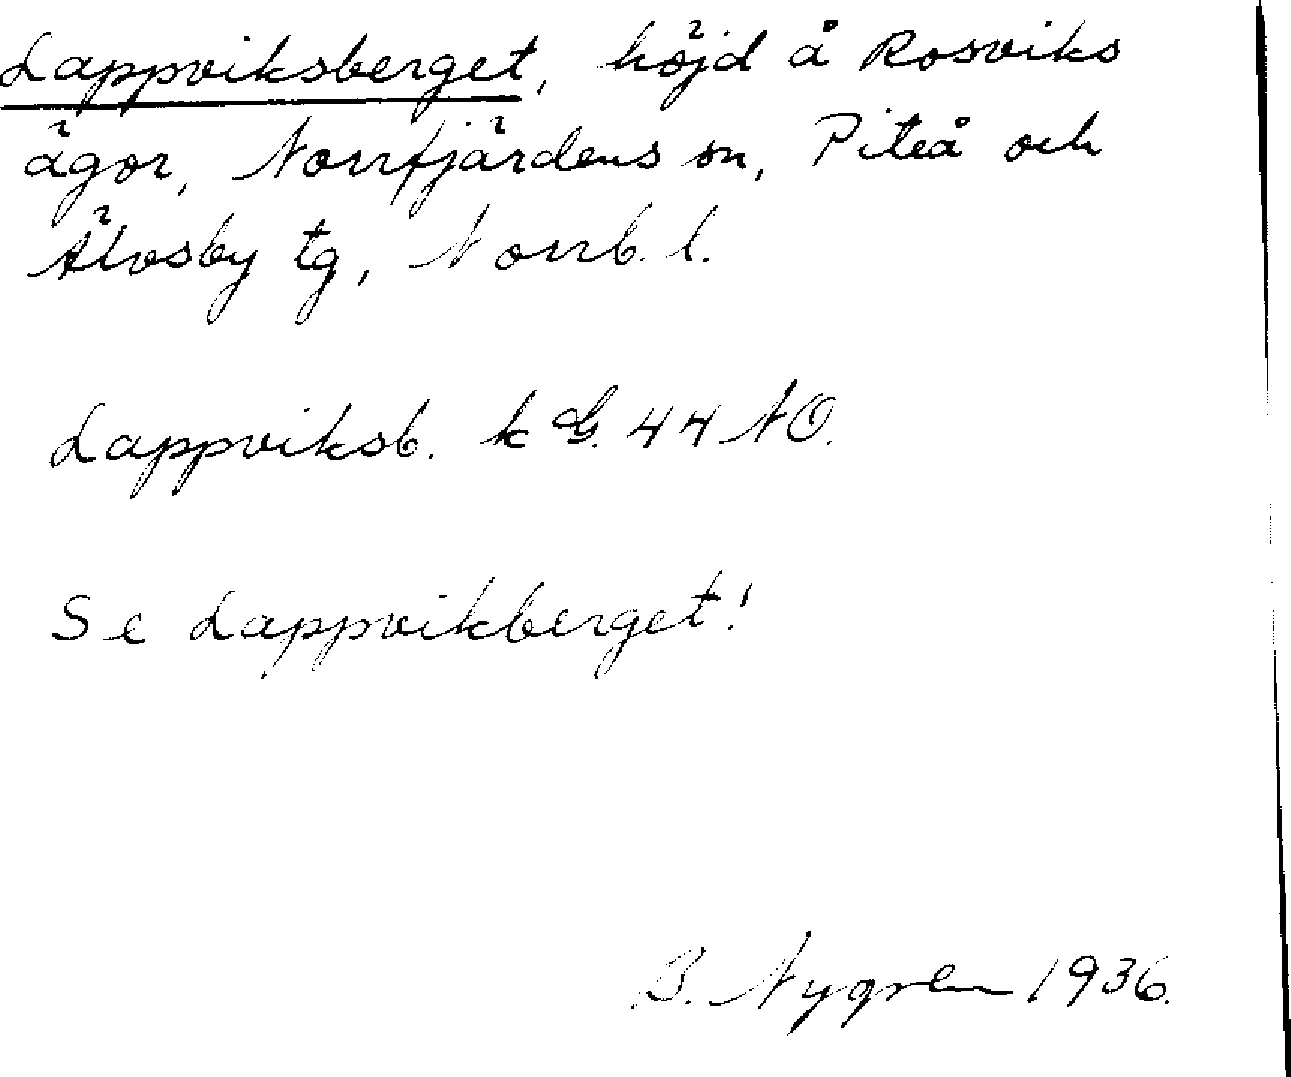 Lappviksberget, höjd å Rosviks
ägor, Norrfjärdens sn, Piteå och
Älvsby tg, Norrb. l.
Lappviksb. k G. 44 NO.
Se Lappvikberget!
B. Nygren 1936.